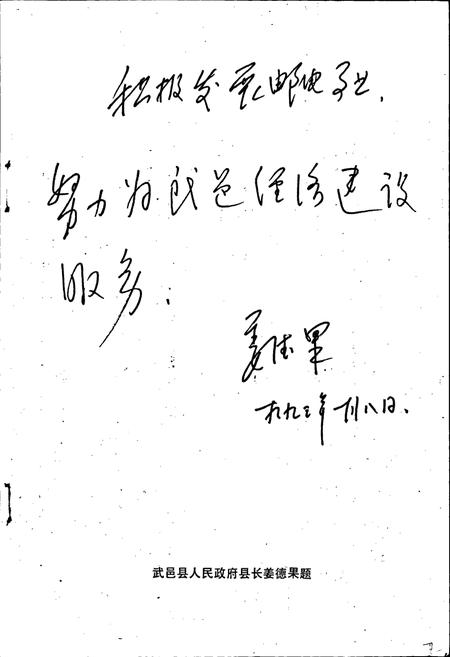 积极发展邮电事业,
努力为武邑经济建设
服务.
姜德果
一九九三年一月八日.
武邑县人民政府县长姜德果题